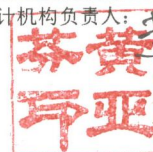 计机构负责人：
黄亚
芬印